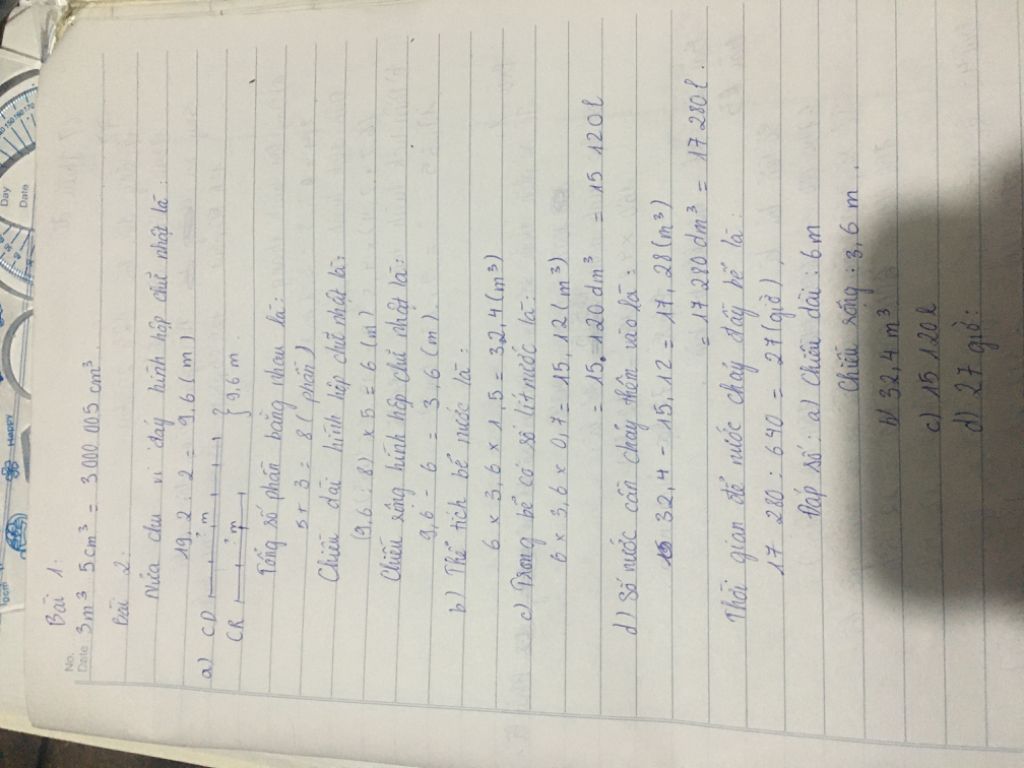 No.
Date
Bài 1:
3m³ 5cm³ = 3 000 005 cm³
Bài 2:
Nửa chu vi đáy hình hộp chữ nhật là:
19,2 : 2 = 9,6 (m)
a) CD
m
CR
m
9,6 m
Tổng số phần bằng nhau là:
5 + 3 = 8 (phần)
Chiều dài hình hộp chữ nhật là:
(9,6 : 8) x 5 = 6 (m)
Chiều rộng hình hộp chữ nhật là:
9,6 - 6 = 3,6 (m).
b) Thể tích bể nước là:
6 x 3,6 x 1,5 = 32,4 (m³)
c) Trong bể có số lít nước là:
6 x 3,6 x 0,7 = 15,12 (m³)
= 15 120 dm³ = 15 120 l
d) Số nước cần chảy thêm vào là:
32,4 - 15,12 = 17,28 (m³)
= 17 280 dm³ = 17 280 l.
Thời gian để nước chảy đầy bể là:
17 280 : 640 = 27 (giờ)
Đáp số: a) Chiều dài: 6m
Chiều rộng: 3,6 m.
b) 32,4 m³
c) 15 120 l
d) 27 giờ.
Day
Date
HAPPY